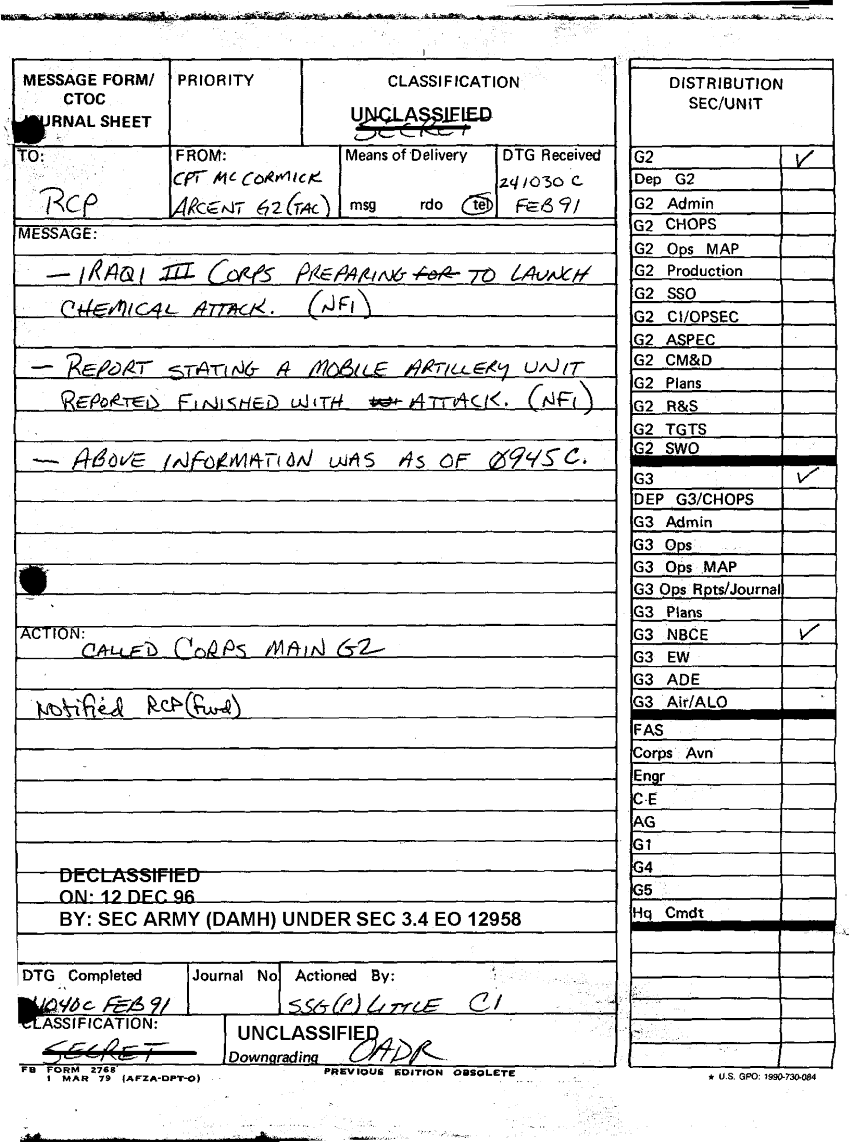 MESSAGE FORM/
CTOC
JOURNAL SHEET
PRIORITY
CLASSIFICATION
UNCLASSIFIED
SECRET
TO:
RCP
FROM:
CPT McCORMICK
ARCENT G2 (TAC)
Means of Delivery
msg rdo tel
DTG Received
241030 C
FEB 91
MESSAGE:
— IRAQI III CORPS PREPARING for TO LAUNCH
CHEMICAL ATTACK. (NFI)
— REPORT STATING A MOBILE ARTILLERY UNIT
REPORTED FINISHED WITH ATTACK. (NFI)
— ABOVE INFORMATION WAS AS OF 0945 C.
ACTION:
CALLED CORPS MAIN G2
Notified RCP (Fwd)
DECLASSIFIED
ON: 12 DEC 96
BY: SEC ARMY (DAMH) UNDER SEC 3.4 EO 12958
DTG Completed
1040C FEB 91
Journal No
Actioned By:
SSG(P) LITTLE CI
CLASSIFICATION:
SECRET
UNCLASSIFIED
Downgrading OADR
FB FORM 2768
1 MAR 79 (AFZA-DPT-O)
PREVIOUS EDITION OBSOLETE
DISTRIBUTION
SEC/UNIT
G2 ✓
Dep G2
G2 Admin
G2 CHOPS
G2 Ops MAP
G2 Production
G2 SSO
G2 CI/OPSEC
G2 ASPEC
G2 CM&D
G2 Plans
G2 R&S
G2 TGTS
G2 SWO
G3 ✓
DEP G3/CHOPS
G3 Admin
G3 Ops
G3 Ops MAP
G3 Ops Rpts/Journal
G3 Plans
G3 NBCE ✓
G3 EW
G3 ADE
G3 Air/ALO
FAS
Corps Avn
Engr
C-E
AG
G1
G4
G5
Hq Cmdt
★ U.S. GPO: 1990-730-084